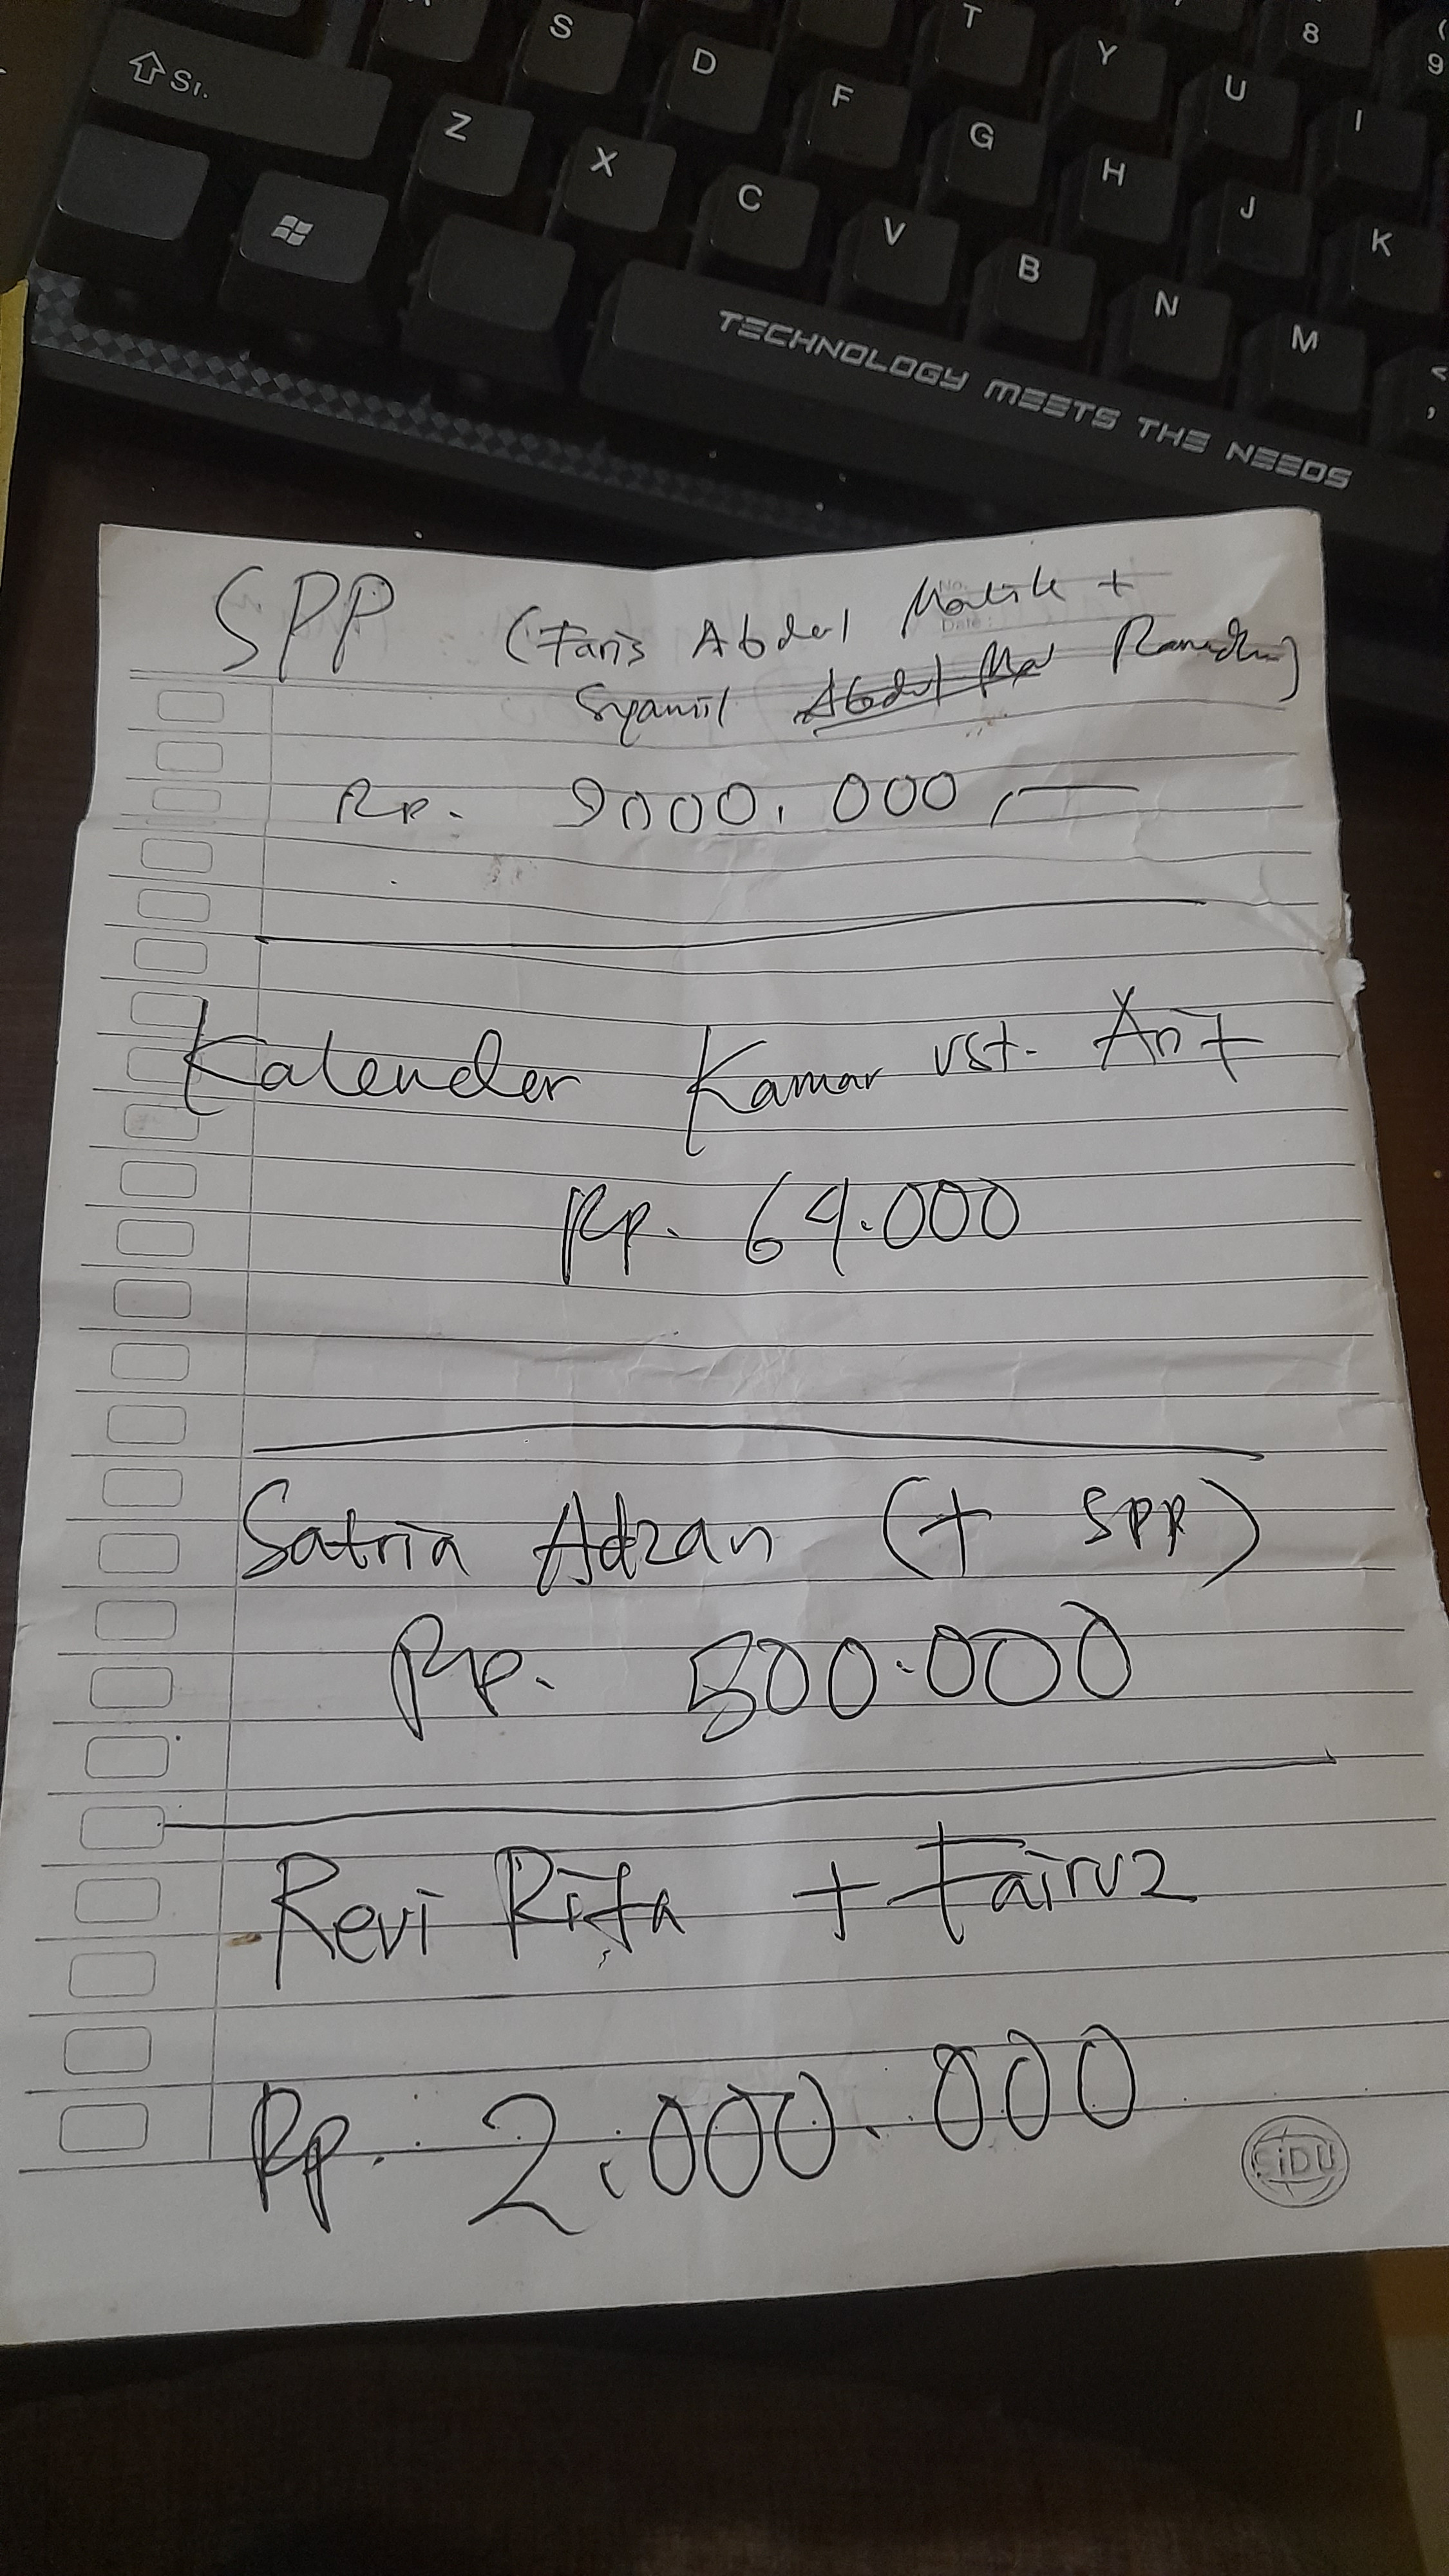 S T 8 9
⇧ Sı. D Y U I
Z F G H J K
X C V B N M < ,
TECHNOLOGY MEETS THE NEEDS
No.
Date :
SPP (Faris Abdul Malik +
Syamil Abdul Ma Ramadhan)
Rp. 9000.000,—
Kalender Kamar Ust. Arif
Rp. 64.000
Satria Adzan (+ SPP)
Rp. 500.000
Revi Rifa + Fairuz
Rp. 2.000.000
SiDU